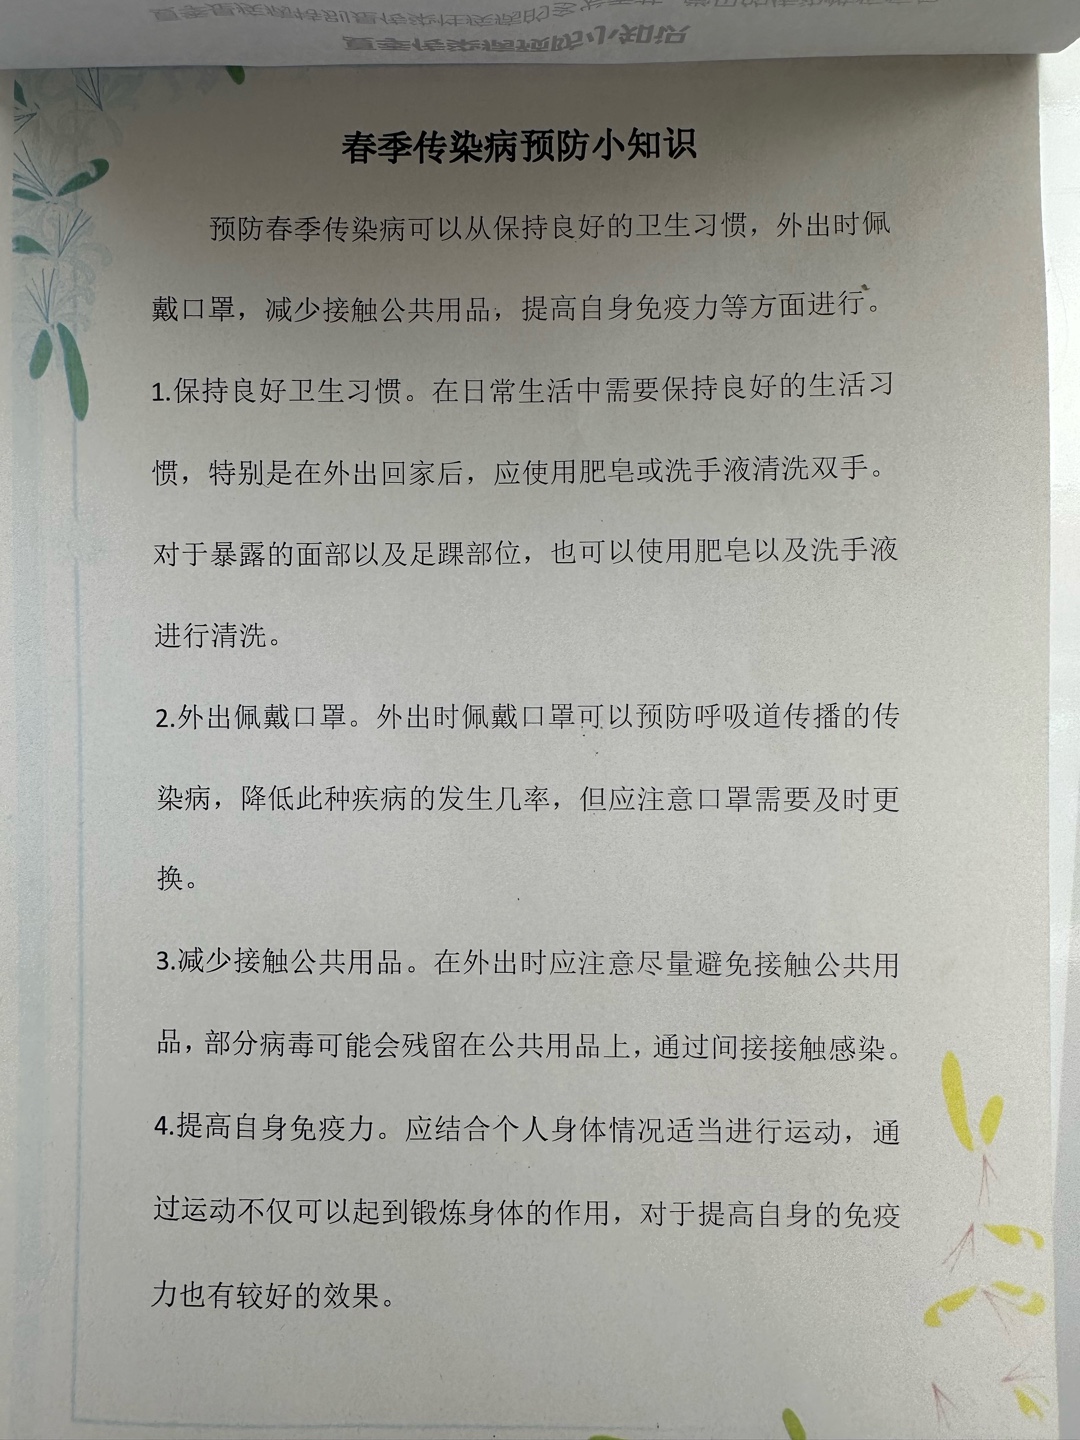 夏季传染病预防小知识
春季传染病预防小知识
预防春季传染病可以从保持良好的卫生习惯，外出时佩
戴口罩，减少接触公共用品，提高自身免疫力等方面进行。
1.保持良好卫生习惯。在日常生活中需要保持良好的生活习
惯，特别是在外出回家后，应使用肥皂或洗手液清洗双手。
对于暴露的面部以及足踝部位，也可以使用肥皂以及洗手液
进行清洗。
2.外出佩戴口罩。外出时佩戴口罩可以预防呼吸道传播的传
染病，降低此种疾病的发生几率，但应注意口罩需要及时更
换。
3.减少接触公共用品。在外出时应注意尽量避免接触公共用
品，部分病毒可能会残留在公共用品上，通过间接接触感染。
4.提高自身免疫力。应结合个人身体情况适当进行运动，通
过运动不仅可以起到锻炼身体的作用，对于提高自身的免疫
力也有较好的效果。